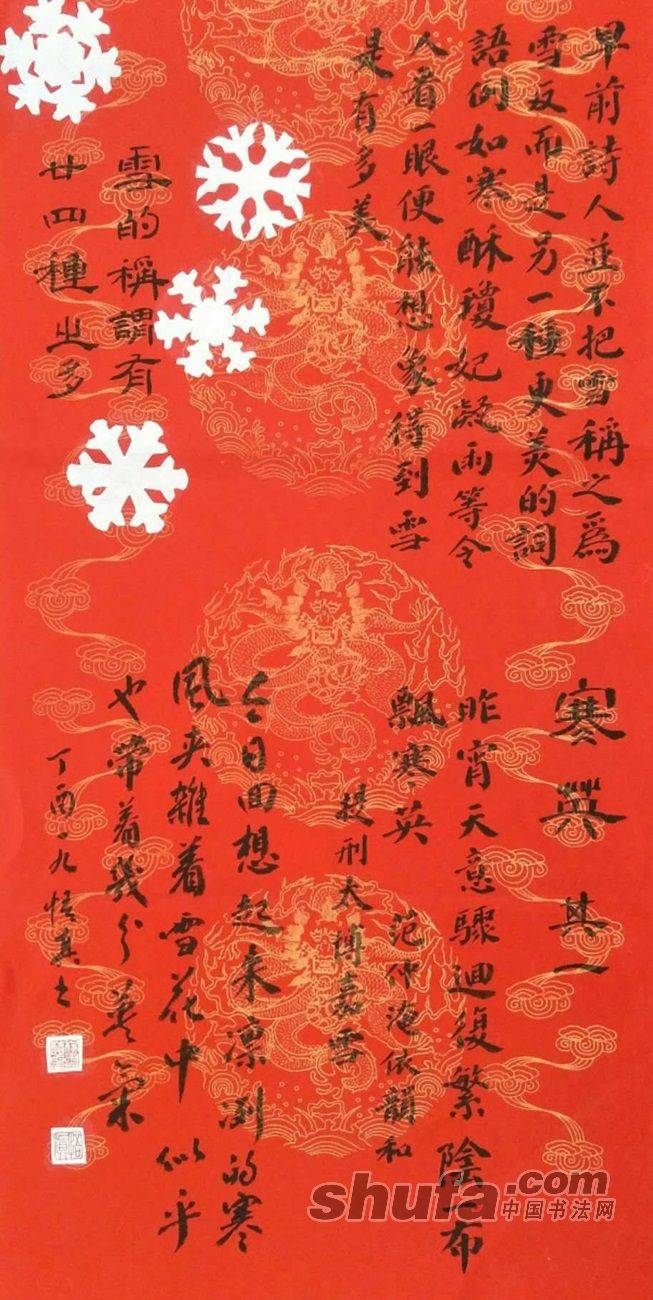 早前詩人並不把雪稱之爲
雪反而是另一種更美的詞
語例如寒酥瓊妃凝雨等令
人看一眼便能想象得到雪
是有多美
雪的稱謂有
廿四種之多
寒英 其一
昨宵天意驟迴復繁陰一布
飄寒英
范仲淹依韻和
提刑太博嘉雪
今日回想起來凛冽的寒
風夹雜着雪花中 似乎
也帶着幾分英氣
丁酉·九 悟真书
shufa.com
中国书法网